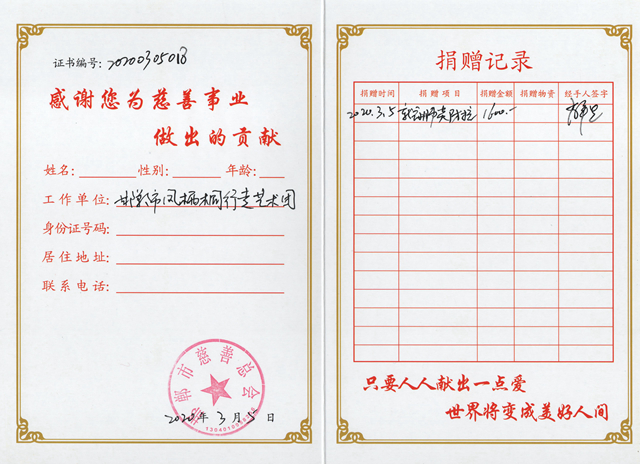 证书编号: 20200305018
感谢您为慈善事业
做出的贡献
姓名: 性别: 年龄:
工作单位: 邯郸市凤栖梧桐行走艺术团
身份证号码:
居住地址:
联系电话:
邯郸市慈善总会
2020年3月5日
捐赠记录
捐赠时间 捐赠项目 捐赠金额 捐赠物资 经手人签字
2020.3.5 1600.-
只要人人献出一点爱
世界将变成美好人间